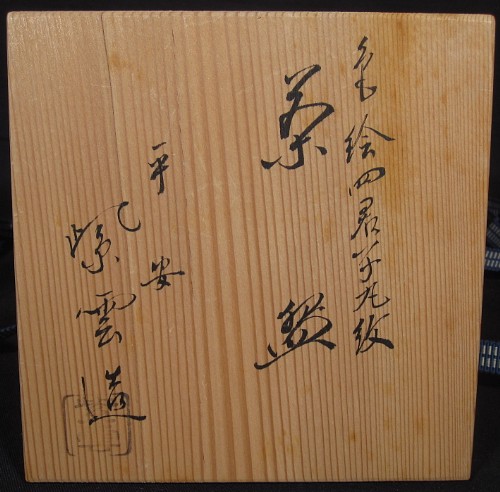 色絵四君子丸紋
茶盌
平安
紫雲造